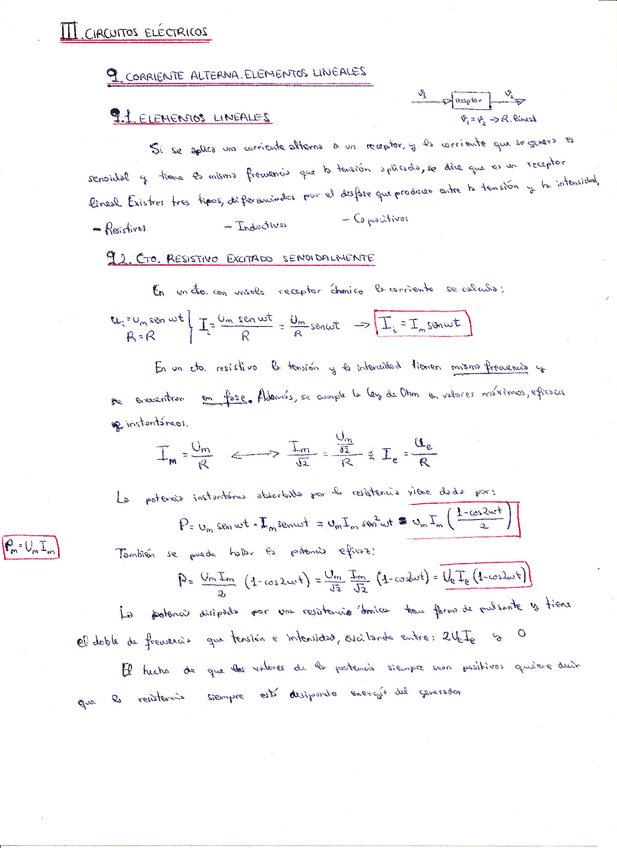 III. CIRCUITOS ELÉCTRICOS
9. CORRIENTE ALTERNA. ELEMENTOS LINEALES
receptor
9.1. ELEMENTOS LINEALES
→ R. lineal
Si se aplica una corriente alterna a un receptor, y la corriente que se genera es
senoidal y tiene la misma frecuencia que la tensión aplicada, se dice que es un receptor
lineal. Existen tres tipos, diferenciados por el desfase que producen entre la tensión y la intensidad,
- Resistivos - Inductivos - Capacitivos
9.2. CTO. RESISTIVO EXCITADO SENOIDALMENTE
En un cto. con un solo receptor óhmico la corriente se calcula:
u_i = U_m sen wt
R = R
I_i = U_m sen wt / R = U_m / R sen wt → I_i = I_m sen wt
En un cto. resistivo la tensión y la intensidad tienen misma frecuencia y
se encuentran en fase. Además, se cumple la ley de Ohm en valores máximos, eficaces
e instantáneos.
I_m = U_m / R ⟷ I_m / √2 = (U_m / √2) / R ; I_e = U_e / R
La potencia instantánea absorbida por la resistencia viene dada por:
P = U_m sen wt · I_m sen wt = U_m I_m sen² wt = U_m I_m ( (1 - cos 2wt) / 2 )
P_m = U_m I_m
También se puede hallar la potencia eficaz:
P = U_m I_m / 2 (1 - cos 2wt) = U_m / √2 I_m / √2 (1 - cos 2wt) = U_e I_e (1 - cos 2wt)
La potencia disipada por una resistencia óhmica tiene forma de pulsante y tiene
el doble de frecuencia que tensión e intensidad, oscilando entre: 2U_e I_e y 0
El hecho de que los valores de la potencia siempre sean positivos quiere decir
que la resistencia siempre está disipando energía del generador